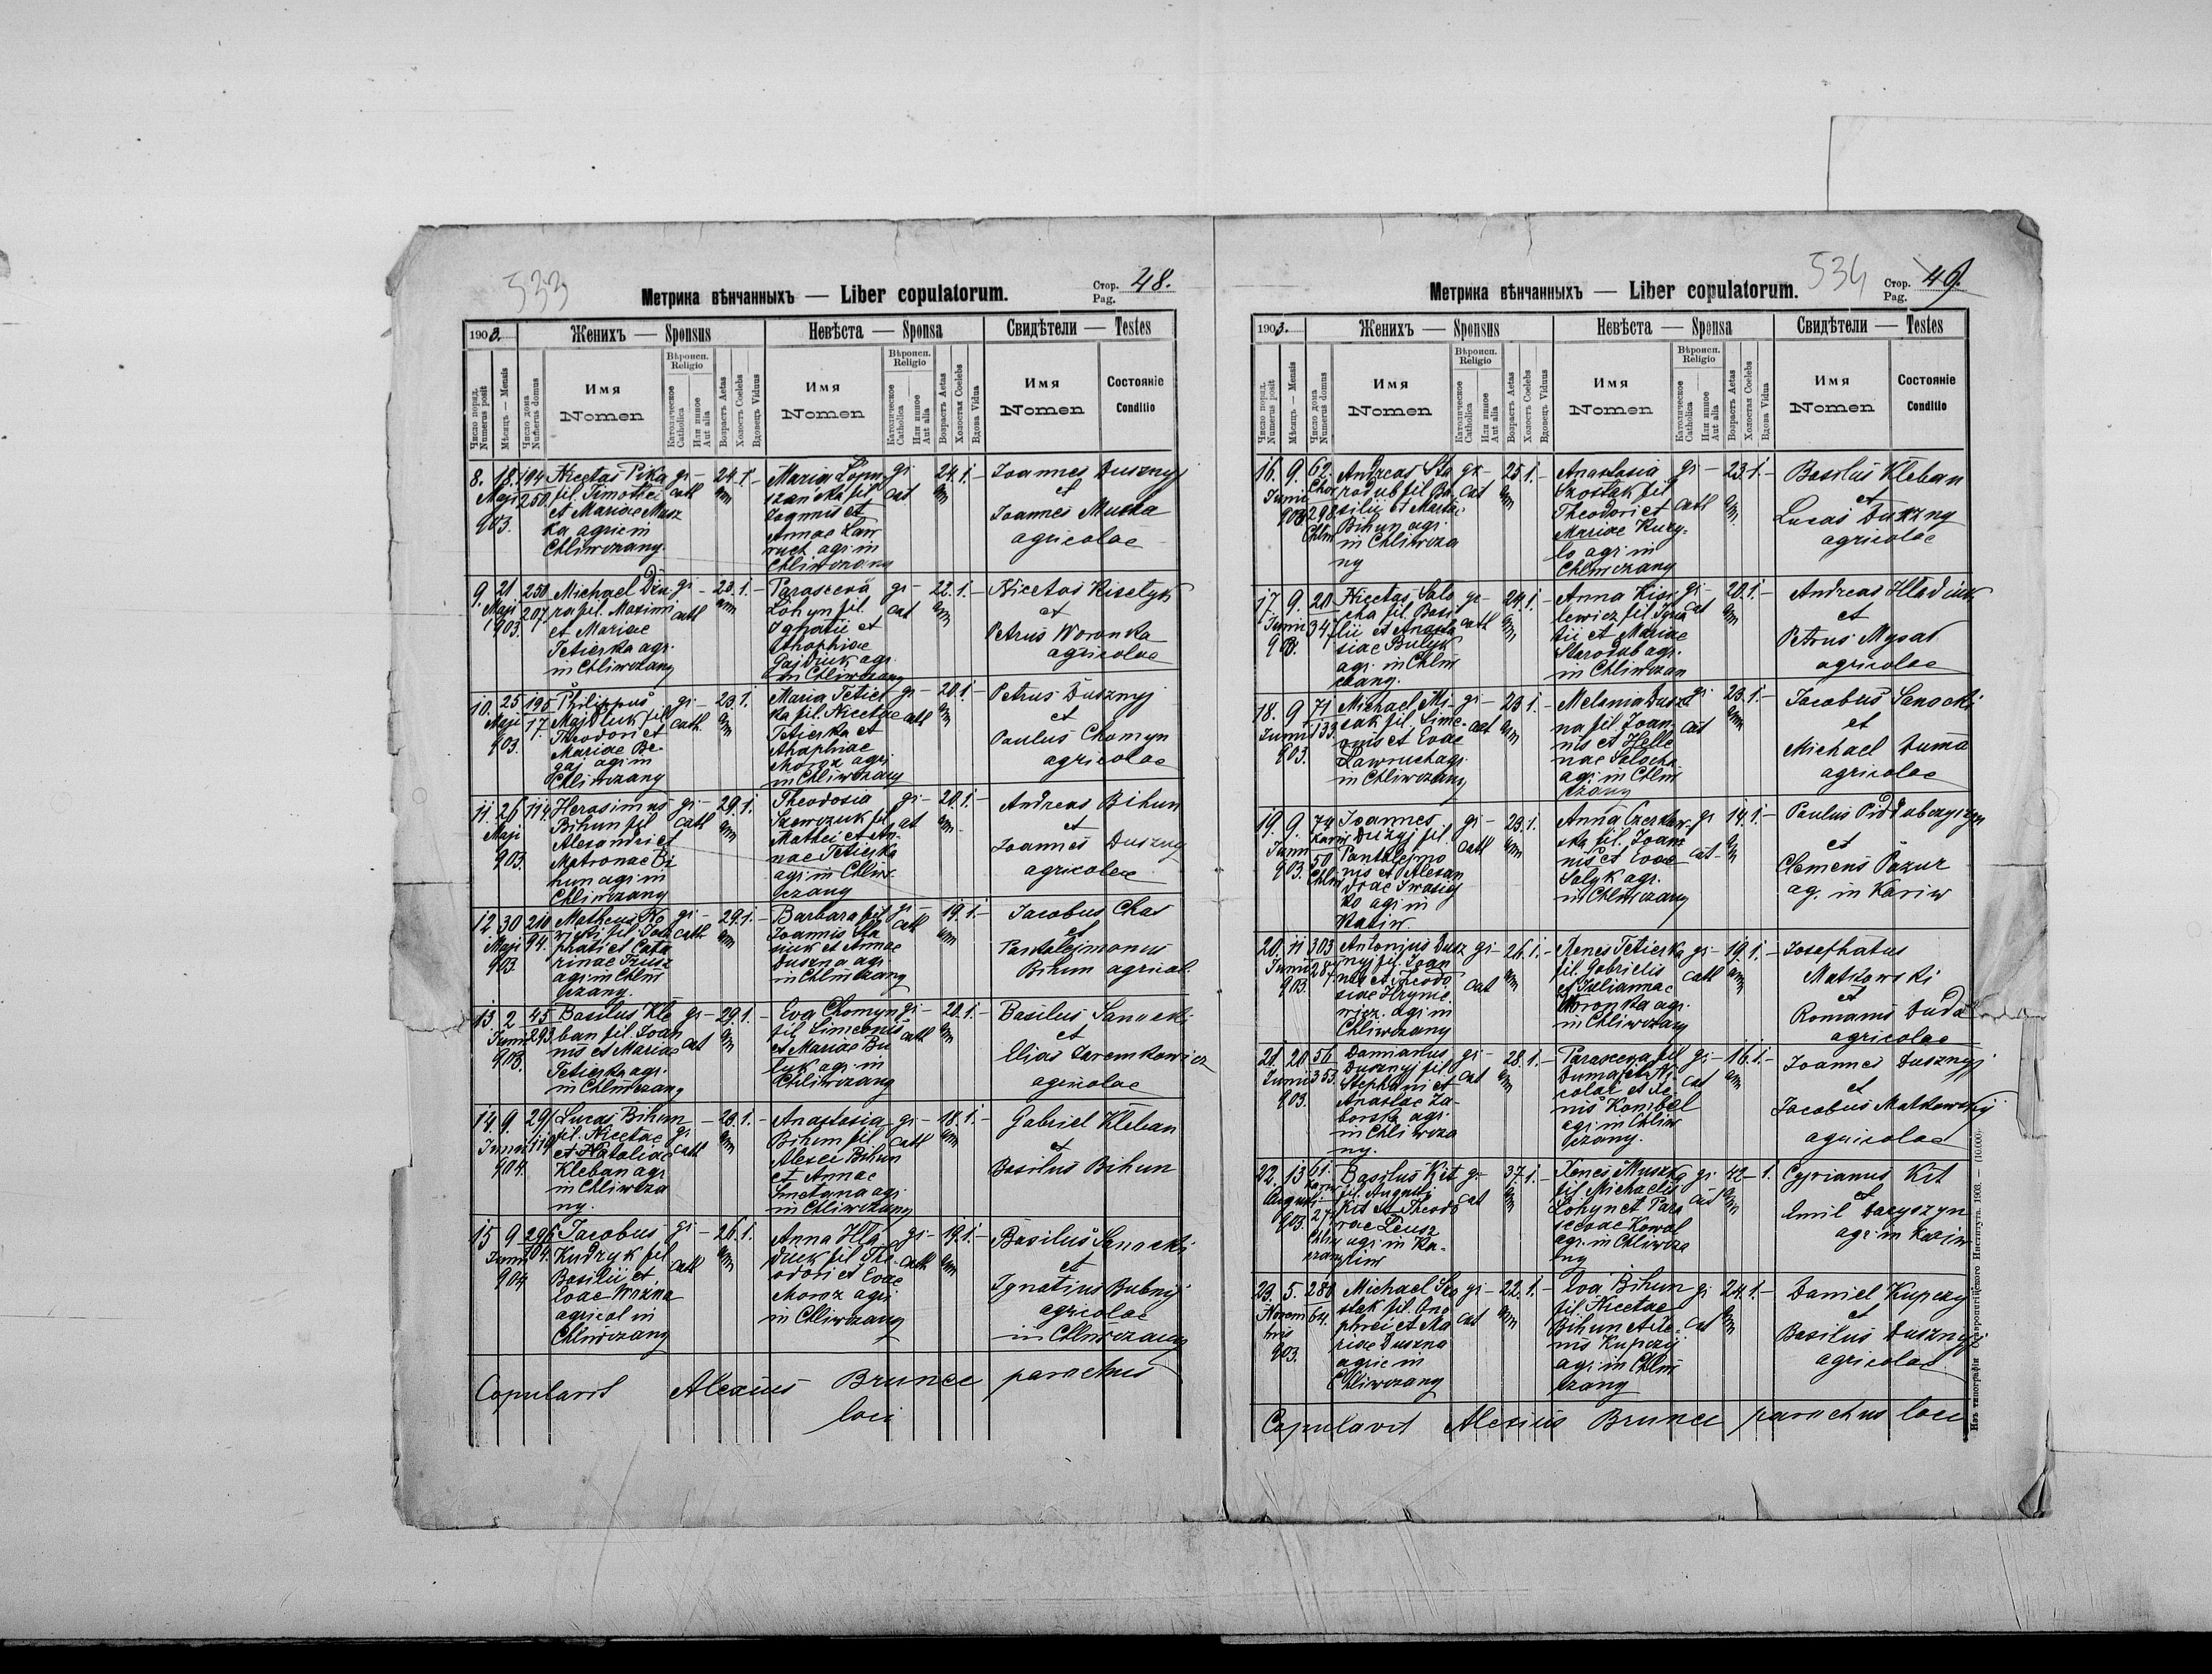 533
Метрика вѣнчанныхъ — Liber copulatorum.
Стор. 48.
Pag.
1903.
Женихъ — Sponsus
Невѣста — Sponsa
Свидѣтели — Testes
Число поряд.
Numerus posit
Мѣсяцъ — Mensis
Число дома
Numerus domus
Имя
Nomen
Вѣроисп.
Religio
Католическое
Catholica
Или инное
Aut alia
Возрастъ Aetas
Холостъ Coelebs
Вдовецъ Viduus
Имя
Nomen
Вѣроисп.
Religio
Католическое
Catholica
Или инное
Aut alia
Возрастъ Aetas
Холостая Coelebs
Вдова Vidua
Имя
Nomen
Состояніе
Conditio
8. 18. Maji 903.
194
250
Nicetas Pika
fil Timothei
et Mariae Musz
ka agric in
Chliwczany
gr cath
24 1. –
Maria
fil
Joannis et
Annae Law
ruch agr in
Chliwczany
gr cat
24. 1. –
Joannes Duszny
et
Joannes Mucha
agricolae
9. 21 Maji 903.
250
207
Michael Diu
ra fil. Maximi
et Mariae
Teterka agr.
in Chliwczany
gr cath
23. 1. –
Parascewa
Lohyn fil.
Ignatii et
Ahaphiae
Gajdiuk agr.
in Chliwczany
gr – cat
22. 1. –
Nicetas Kisetyk
et
Petrus Woronka
agricolae
10. 25 Maji 903.
195
17.
Philippus
Majdiuk fil
Theodori et
Mariae Be-
gaj agr in
Chliwczany
gr – cath
23. 1.
Maria Teter
ka fil. Nicetae
Teterka et
Ahaphiae
Moroz agr
in Chliwczany
gr – cath
20. 1 –
Petrus Dusznyj
et
Paulus Chomyn
agricolae
11. 26 Maji 903.
114
Herasimus
Bihun fil
Alexandri et
Matronae Bi
hun agr in
Chliwczany
gr – cath
29. 1.
Theodosia
Szewczuk fil
Mathei et An-
nae Teterka
agr in Chliw-
czany
gr – cat
20. 1. –
Andreas Bihun
et
Joannes Duszny
agricolae
12. 30 Maji 903.
210
94.
Matheus Ko
fil Joza
phati et Cata
rinae Trusz
agr in Chliw
czany.
gr – cath
29. 1. –
Barbara fil
Joannis Sta
siuk et Annae
Duszna agr
in Chliwczany
gr – cath
19. 1. –
Jacobus Chas
et
Pantalejmonus
Bihun agricol.
13. 2 Junii 903.
45
293
Basilus Kle
ban fil Joan
nis et Mariae
Teterka agr.
in Chliwczany
gr – cat
29. 1.
Eva Chomyn
fil Simeonis
et Mariae Bu
luk agr in
Chliwczany
gr – cath
20. 1. –
Basilus Sanocki
et
Elias Jaremkowicz
agricolae
14. 9. Junii 904.
29
119
Lucas Bihun
fil. Nicetae
et Nataliae
Kleban agr
in Chliwcza
ny.
gr cath
20. 1. –
Anastasia
Bihun fil
Alexei Bihun
et Annae
Smetana agr
in Chliwczany
gr – cath
18. 1. –
Gabriel Kleban
et
Basilus Bihun
15 9 Junii 904
296
104.
Jacobus
Kudryk fil
Basilii et
Evae Wozna
agricol in
Chliwczany
gr – cath
26. 1.
Anna Hla
duck fil The-
odori et Evae
Moroz agr
in Chliwczany
gr – cath
19. 1. –
Basilus Sanocki
et
Ignatius Bubnij
agricolae
in Chliwczany
Copulavit Alexius Brunec parochus
loci
534
Метрика вѣнчанныхъ — Liber copulatorum.
Стор. 49.
Pag.
1903.
Женихъ — Sponsus
Невѣста — Sponsa
Свидѣтели — Testes
Число поряд.
Numerus posit
Мѣсяцъ — Mensis
Число дома
Numerus domus
Имя
Nomen
Вѣроисп.
Religio
Католическое
Catholica
Или инное
Aut alia
Возрастъ Aetas
Холостъ Coelebs
Вдовецъ Viduus
Имя
Nomen
Вѣроисп.
Religio
Католическое
Catholica
Или инное
Aut alia
Возрастъ Aetas
Холостая Coelebs
Вдова Vidua
Имя
Nomen
Состояніе
Conditio
16. 9. Junii 903
62.
298
Andreas Sta
rodub fil Ba
silii et Mariae
Bihun agr.
in Chliwcza
ny
gr – cat
25 1. –
Anastasia
Szostak fil
Theodori et
Mariae Kury-
lo agr in
Chliwczany
gr – cath
23 1. –
Basilus Kleban
et
Lucas Duszny
agricolae
17. 9. Junii 903.
20
347
Nicetas Solo
cha fil Basi
lii et Anasta
siae Bulyk
agr. in Chliw
czany.
gr – cath
24. 1. –
Anna Kisi
lewicz fil Igna
tii et Mariae
Starodub agr.
in Chliwczan
gr – cat
20. 1. –
Andreas Hladiuk
et
Petrus Mysak
agricolae
18. 9 Junii 903.
71
133.
Michael Mi-
sak fil. Sime-
onis et Evae
Lawruch agr.
in Chliwczany
gr – cat
23 1. –
Melania Dusz
na fil Joan
nis et Hele
nae Solocha
agr in Chliw
czany
gr cat
23. 1. –
Jacobus Sanocki
et
Michael Duma
agricolae
19. 9. Junii 903.
74
50
Chliw
Joannes
Duzyj fil
Pantalejmo
nis et Alexan
drae Iwasiej
ko agr in
Kariw.
gr – cath
23. 1. –
Anna Czerkaw-
ska fil. Joan
nis et Evae
Salyk agr.
in Chliwczany
gr cat –
14. 1. –
Paulus Piddubczyszyn
et
Clemens Pazur
ag. in Kariw
20. 11 Junii 903.
303
287
Antonius Dusz
nyj fil. Joan
nis et Theodo
siae Hryne
wicz. agr in
Chliwczany
gr – cat
26. 1. –
Xenes Teterka
fil. Gabrielis
et Juliannae
Woronka agr.
in Chliwczany
gr – cath
19. 1. –
Josephatus
Matkowski
et
Romanus Duda
agricolae
21. 20 Junii 903.
56
353.
Damianus
Dusznyj fil
Stephani et
Anastae Za-
borska agr.
in Chliwcza
ny.
gr – cat
28. 1. –
Parascewa fil
Duma fil Ni
colai et Xe
nis Kombel
agr in Chliw
czany.
gr – cat
16. 1. –
Joannes Dusznyj
et
Jacobus Matkowskij
agricolae
22. 13 Augusti 903.
61.
27.
Basilus Kit
fil. Augusti
Kit et Theodo
rae Leusz
agr in Ka-
riw
gr – cat
37. 1. –
Xenes Muszka
fil Michaelis
Lohyn et Para
scevae Kowal
agr. in Chliwcza
ny
gr. cat
42 – 1.
Cyrianus Kit
et
Emil Daryszyn
agr in Kariw
23. 5. Novembris 903.
280
64.
Michael Szo
stak fil. Ono
phrei et Ma
riae Duszna
agric in
Chliwczany
gr – cat
22. 1. –
Eva Bihun
fil. Nicetae
Bihun et Xe-
nis Kupczy
agr in Chliw
czany
gr cat
24. 1. –
Daniel Kupczy
et
Basilus Dusznyj
agricolae
Copulavit Alexius Brunec parochus loci
Изъ типографіи Ставропигійского Института. 1903. — (10.000).